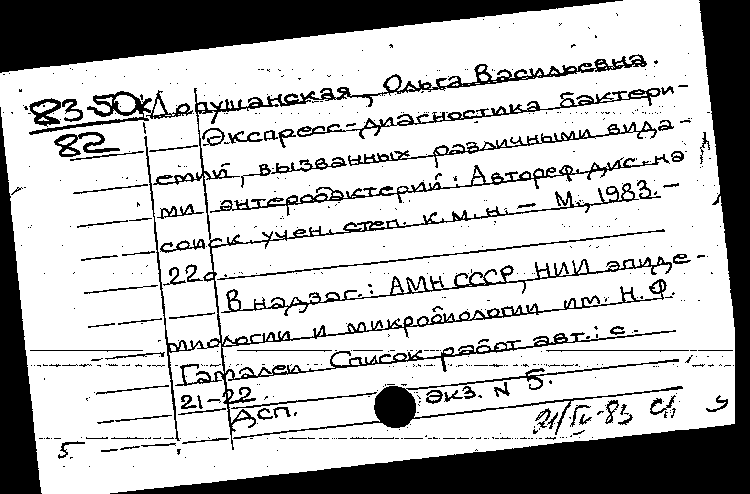 83-50к Лопушанская, Ольга Васильевна.
82
Экспресс-диагностика бактери-
емий, вызванных различными вида-
ми энтеробактерий: Автореф. дис. на
соиск. учен. степ. к.м.н. — М., 1983. —
22с.
В надзаг.: АМН СССР, НИИ эпиде-
миологии и микробиологии им. Н.Ф.
Гамалеи. Список работ авт.: с.
21-22.
ДСП. Экз. N 5.
21/IV-83
5.